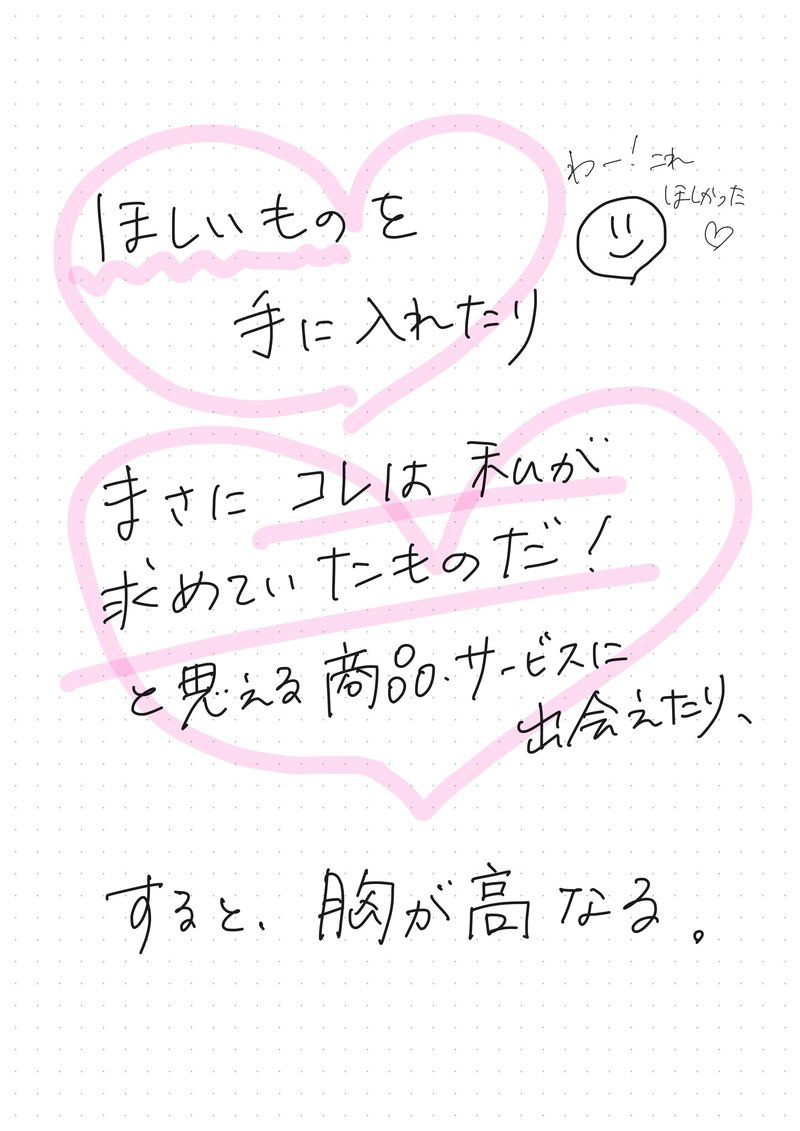 ほしいものを
わー！これ
ほしかった♡
手に入れたり
まさに コレは 私が
求めていたものだ！
と思える商品・サービスに
出会えたり、
すると、胸が高なる。